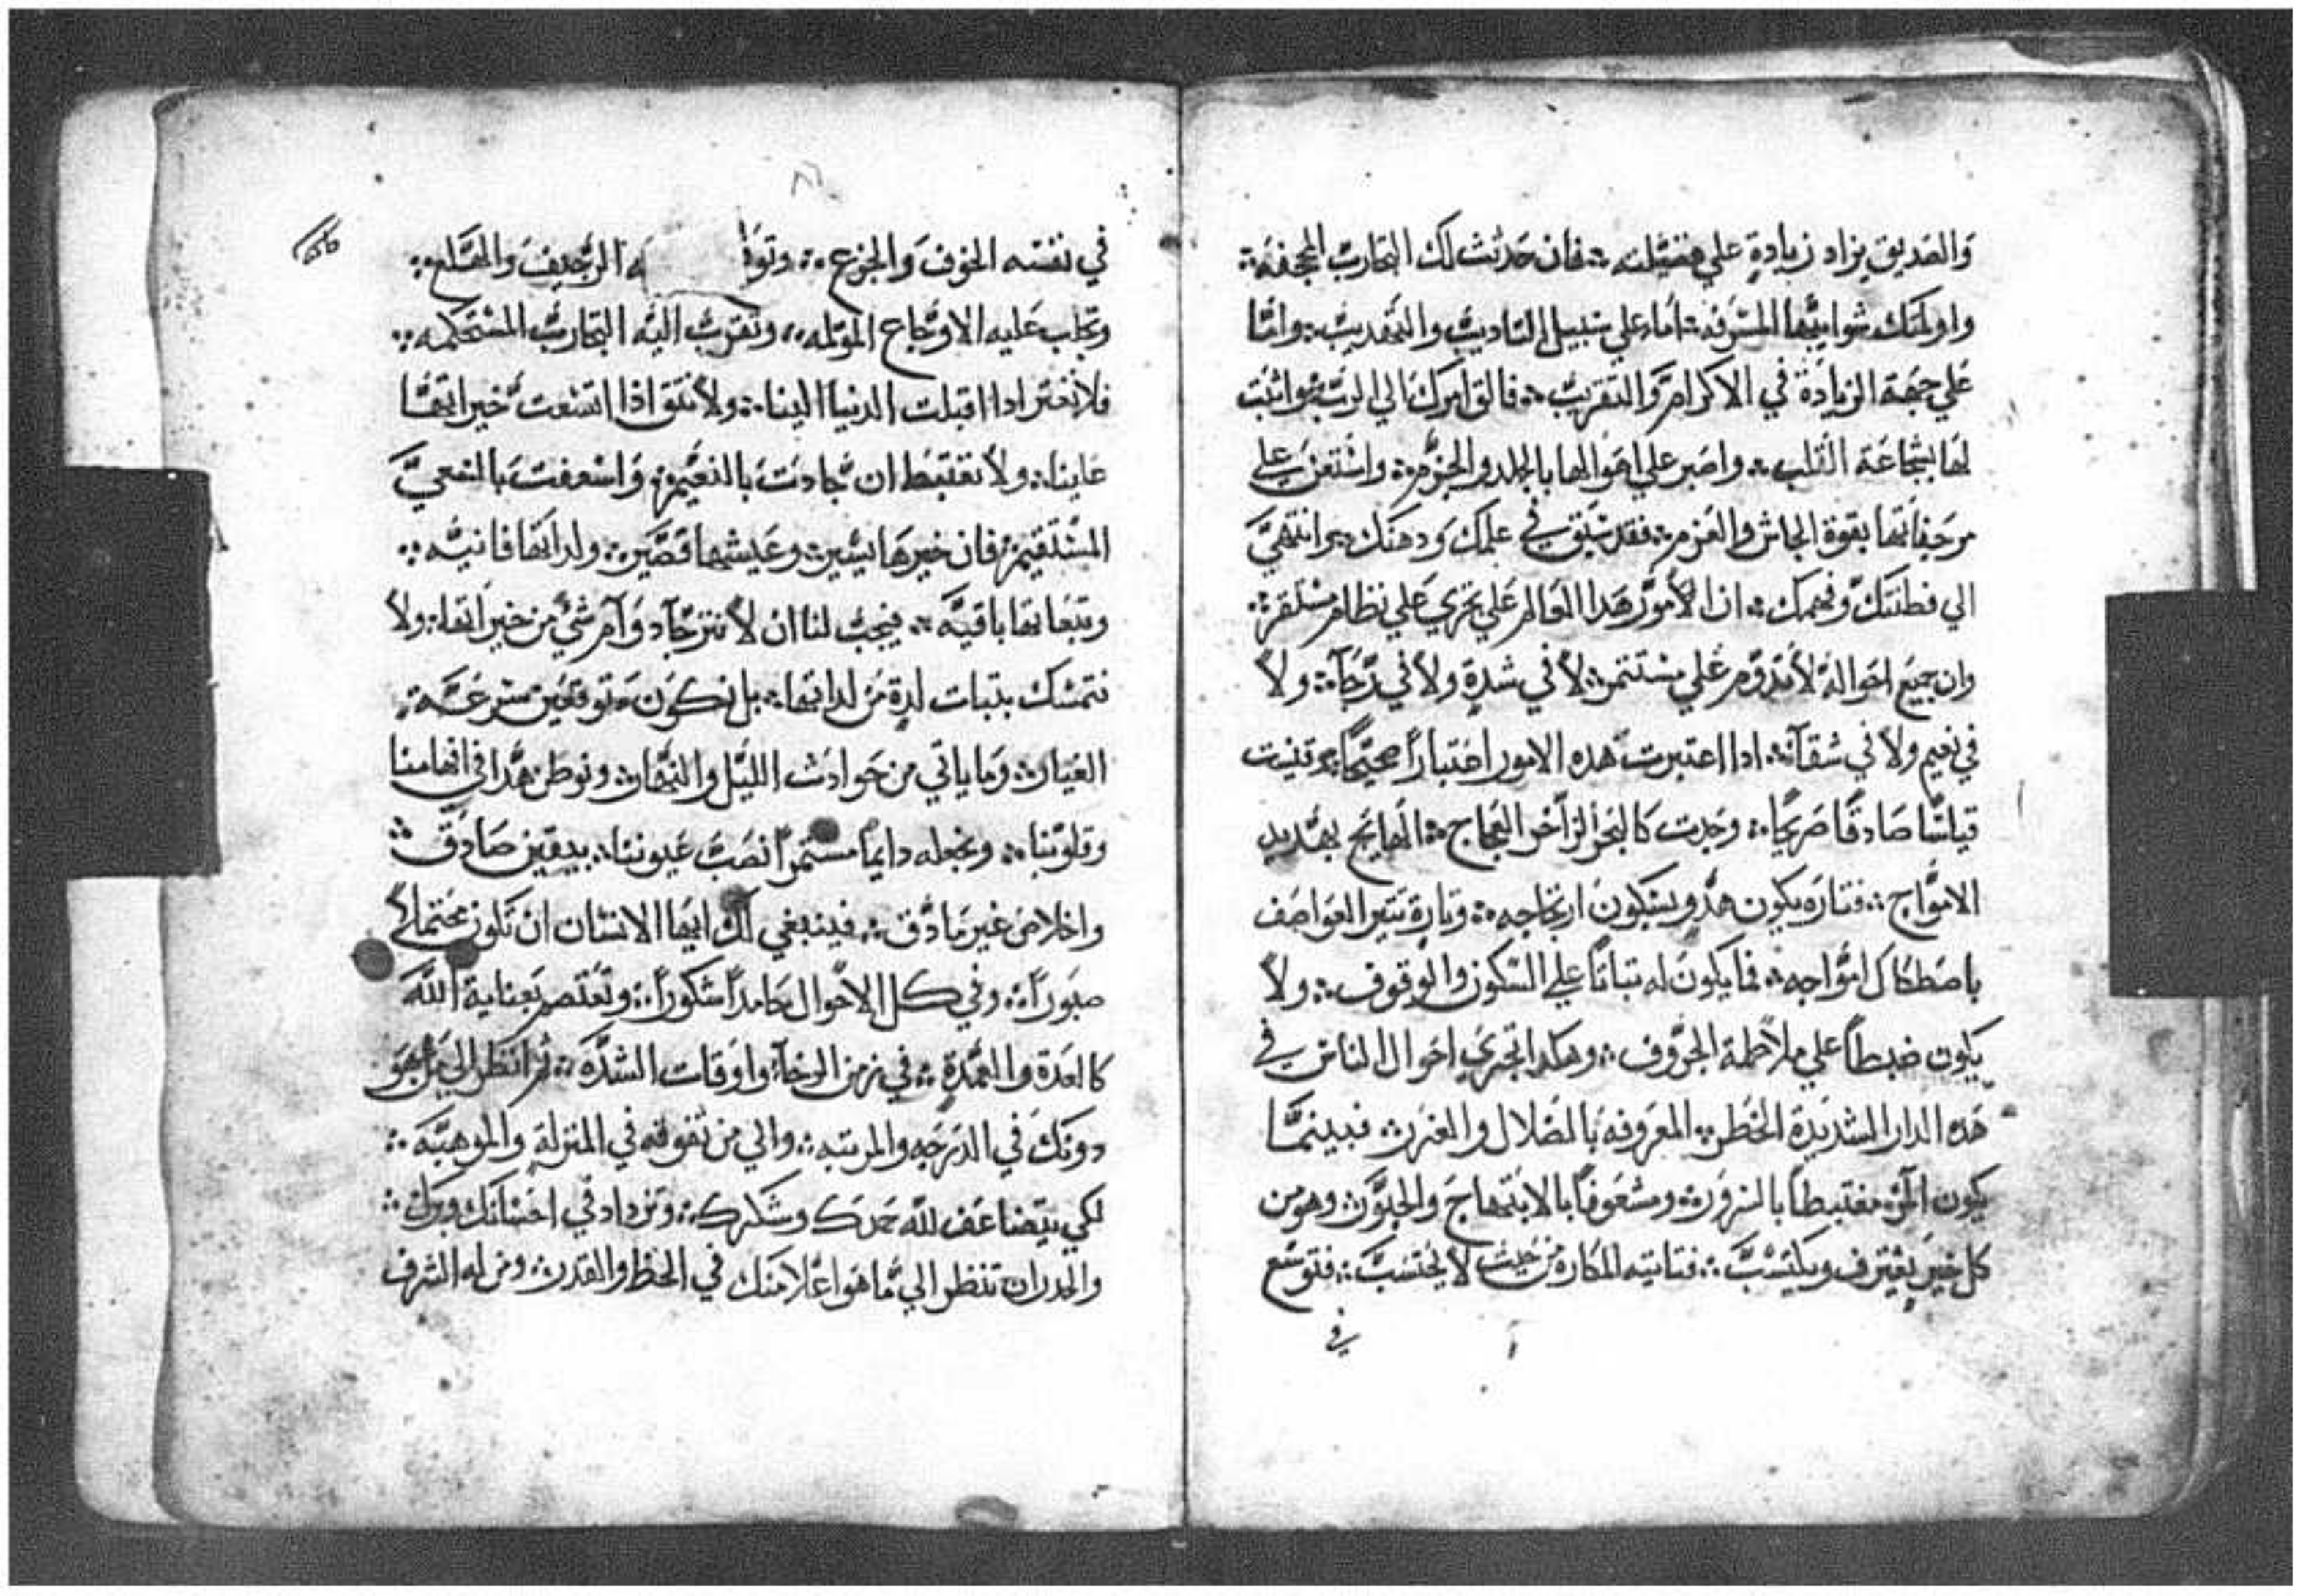 والصديق يزاد زيادة علي فضيلته ؞ فان حدثت لك التجارب المجحفه ؞
شوايبها المسرفه ؞ اما علي سبيل التاديب والتهديب ؞ واما
علي جهة الزيادة في الاكرام والتقريب ؞ فالق امرك الي الرب واثبت
لها بشجاعة القلب ؞ واصبر علي اهوالها بالجلد والحزم ؞ واستعن علي
مزحفاتها بقوة الجاش والعزم ؞ فقد سبق في علمك ودهنك ؞ وانتهي
الي فطنتك وفهمك ؞ ان الامور هدا العالم علي تجري علي نظام مستقر ؞
وان جميع احواله لا تدوم علي مستتمر ؞ لا في شدة ولا في رخآء ؞ ولا
في نعيم ولا في شقآء ؞ ادا اعتبرت هده الامور اختباراً صحيحاً ؞ وقيست
قياسًا صادقًا صريحًا ؞ وجدت كالبحر الزاخر العجاج ؞ الهايج بهديد
الامواج ؞ فتاره يكون هدو بسكون ارتجاجه ؞ وتارة تتير العواصف
باصطكاك امواجه ؞ فما يكون له تباتاً علي السكون والوقوف ؞ ولا
يكون ضبطاً علي ملاطمة الجروف ؞ وهكدا تجري احوال الناس في
هده الدار الشديدة الخطر ؞ المعروفه بالضلال والغرر ؞ فبينما
يكون المرؤ مغتبطاً بالسرور ؞ ومشغوفاً بالابتهاج والحبور ؞ وهو من
كل خير يغترف ويكتسب ؞ فتاتيه المكاره من حيت لا يحتسب ؞ فتوسع
في
في نفسه الخوف والجزع ؞ الرجيف والهلع ؞
وتجلب عليه الاوجاع المولمه ؞ وتقرب اليه التجارب المستحكمه ؞
فلا نغتر ادا اقبلت الدنيا الينا ؞ ولا نتق اذا اتسعت خيراتها
علينا ؞ ولا نغتبط ان جادت بالنعيم ؞ واسعفت بالسعي
المستقيم ؞ فان خيرها يسير ؞ وعيشها قصير ؞ ولداتها فانيه ؞
وتبعاتها باقيه ؞ فيجب لنا ان لا نترجا دوام شئ من خيراتها ؞ ولا
نتمسك بتبات لدة من لداتها ؞ بل نكون متوقعين سرعة
الغيار ؞ وما ياتي من حوادث الليل والنهار ؞ ونوطن هدا في افهامنا
وقلوبنا ؞ ونجعله دايماً مستمراً نصب عيوننا ؞ بيقين صادق ؞
واخلاص غير مادق ؞ فينبغي لك ايها الانسان ان تكون محتملاً
صبوراً ؞ وفي كل الاحوال حامداً شكوراً ؞ وتعتصم بعناية الله
كالعدة والعمدة ؞ في زمن الرخآء واوقات الشده ؞ ثم انظر الي من هو
دونك في الدرجه والمرتبه ؞ والي من تفوقه في المنزلة والموهبه ؞
لكي يتضاعف لله حمدك وشكرك ؞ وتزداد في احسانك وبرك ؞
والحدران تنظر الي ما هو اعلا منك في الحظ والقدر ؞ ومن له الشرف